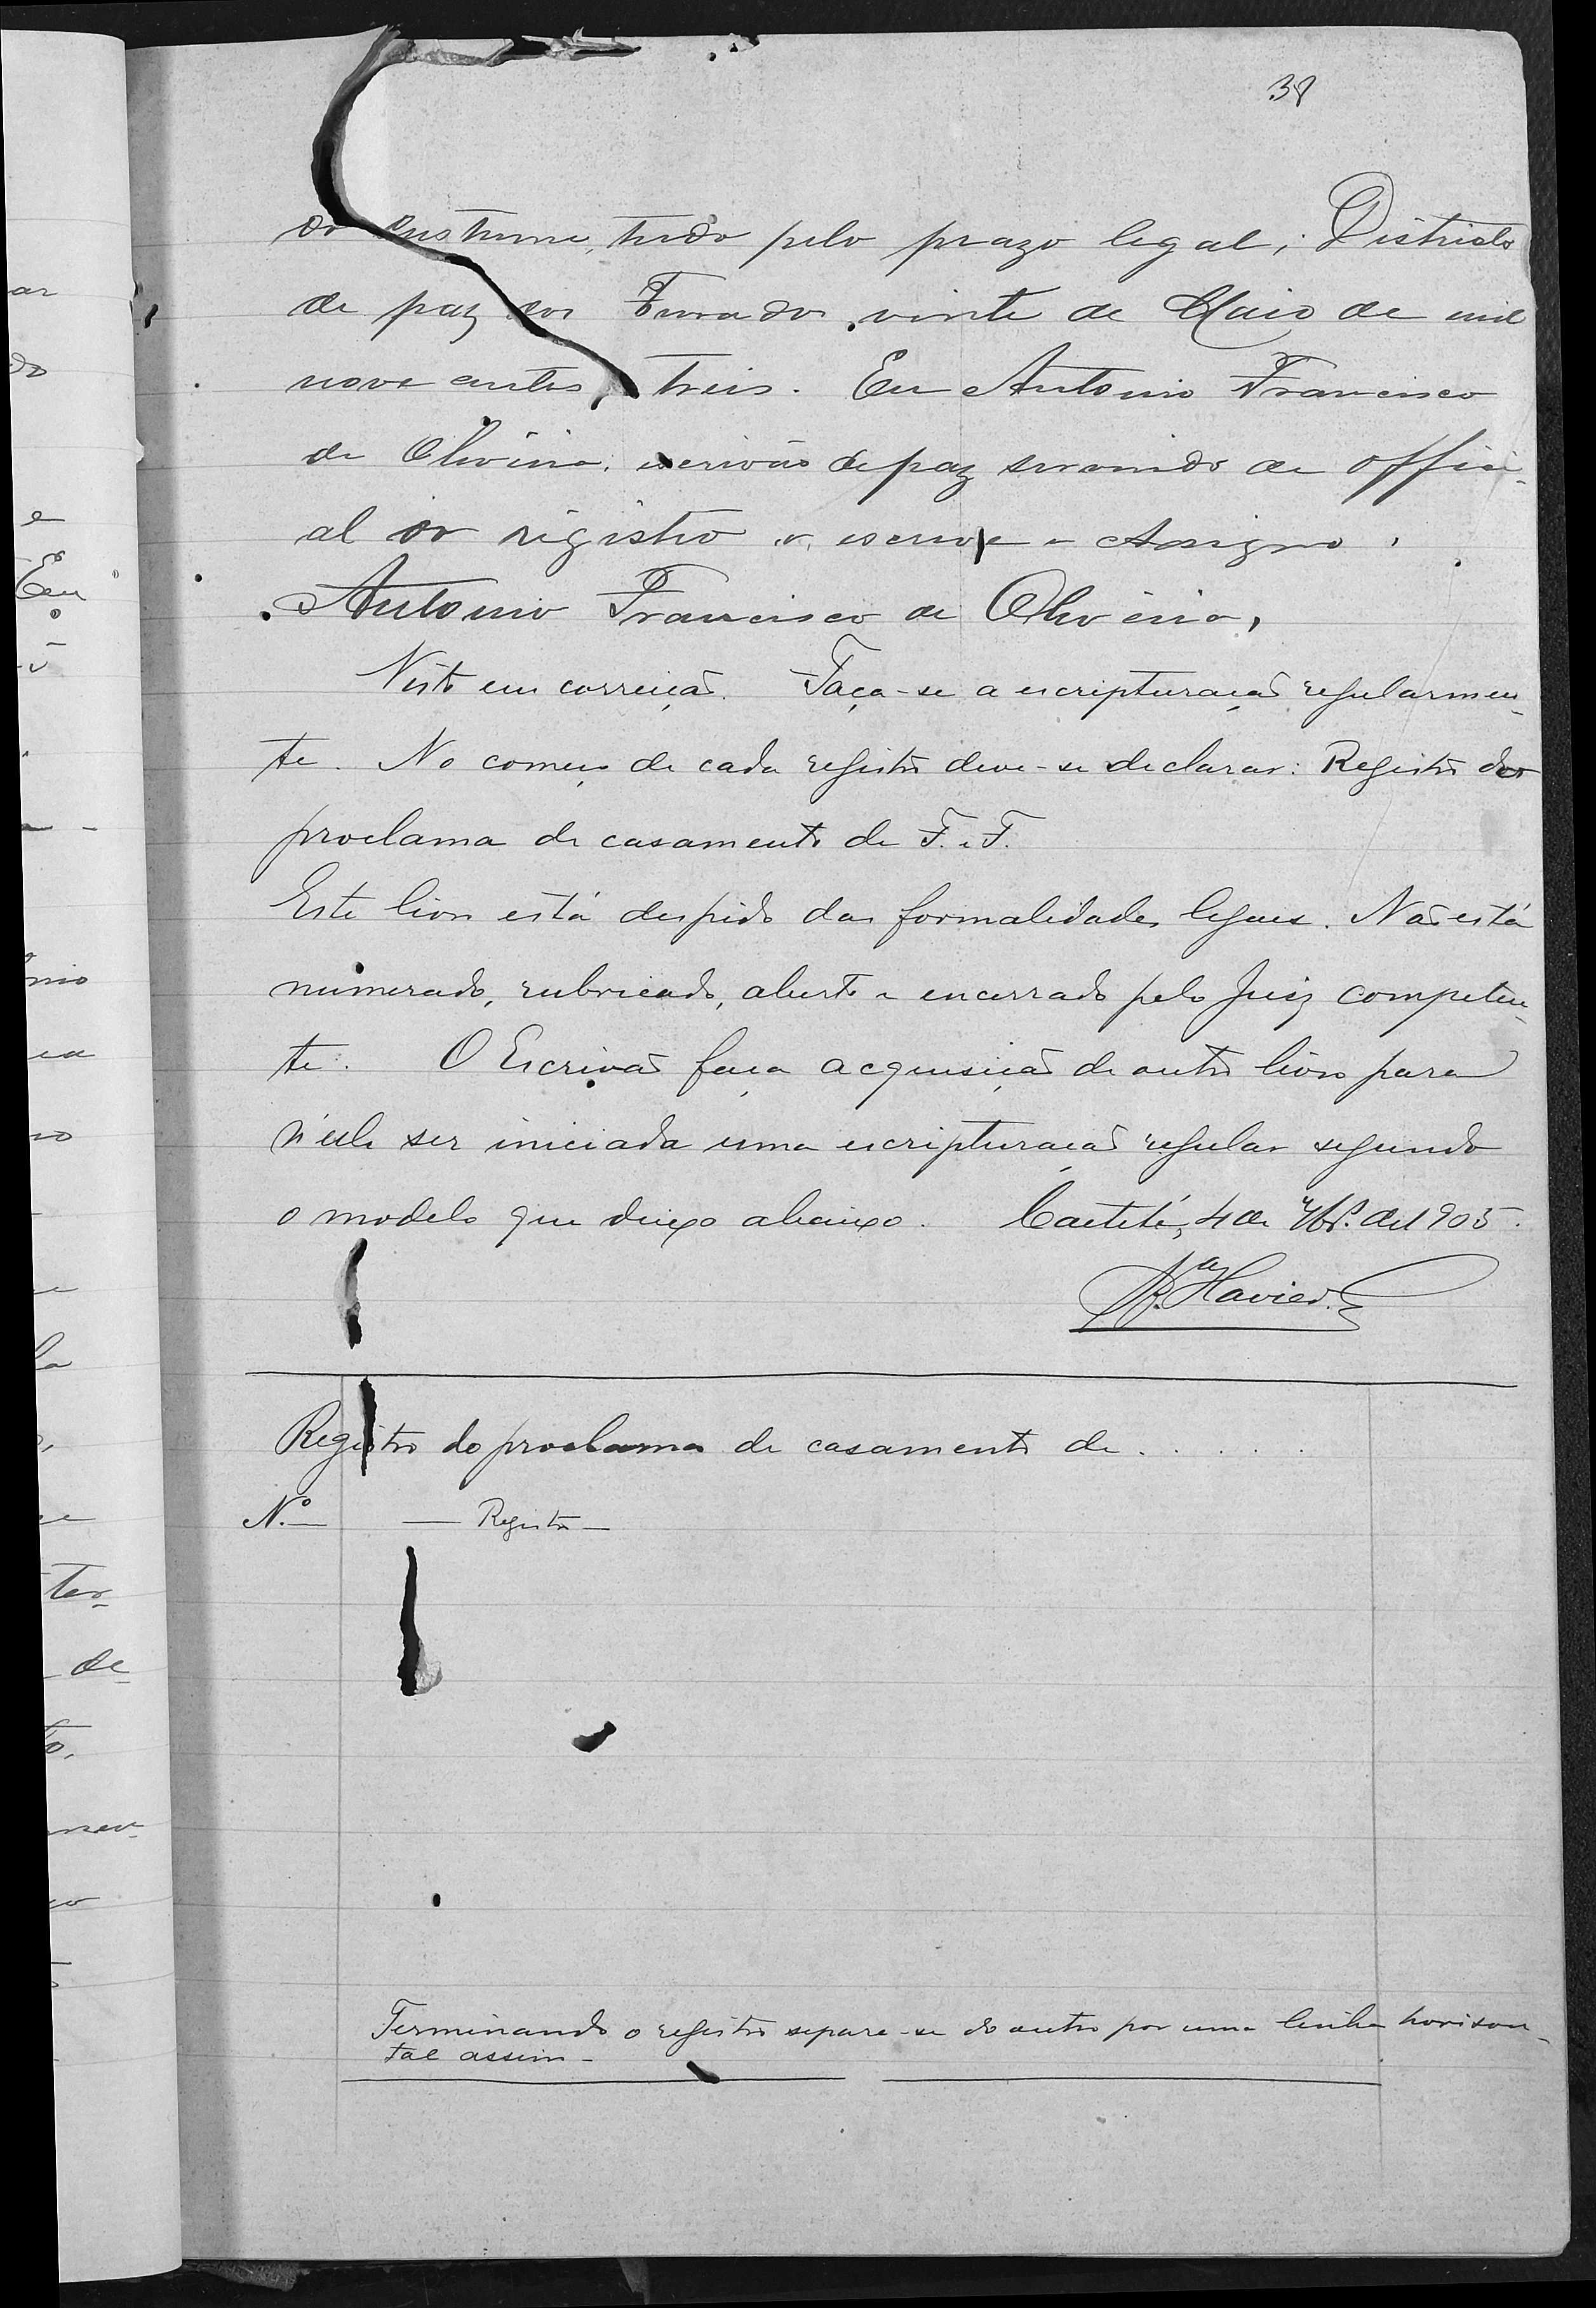 38
do custume, tudo pelo prazo legal; Districto
de paz dos Furados, vinte de Maio de mil
nove centos e treis. Eu Antonio Francisco
de Oliveira, escrivão de paz servindo de offici-
al do registro o escrevi e assigno.
Antonio Francisco de Oliveira,
Visto em correição. Faça-se a escripturação regularmen-
te. No começo de cada registro deve-se declarar: Registro do
proclama de casamento de F. e F.
Este livro está despido das formalidades legaes. Não está
numerado, rubricado, aberto e encerrado pelo Juiz competen-
te. O Escrivão faça acquisição de outro livro para
n'elle ser iniciada uma escripturação regular segundo
o modelo que deixo abaixo. Caetité, 4 de 1905.
Xavier
Registro do proclama de casamento de . . . . . .
N.º — — Registro —
Terminando o registro separe-se do outro por uma linha horison-
tal assim —